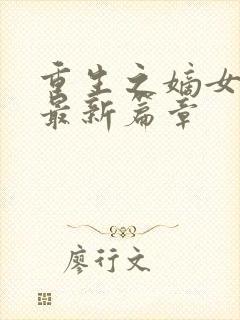 重生之嫡女
最新篇章
廖行文